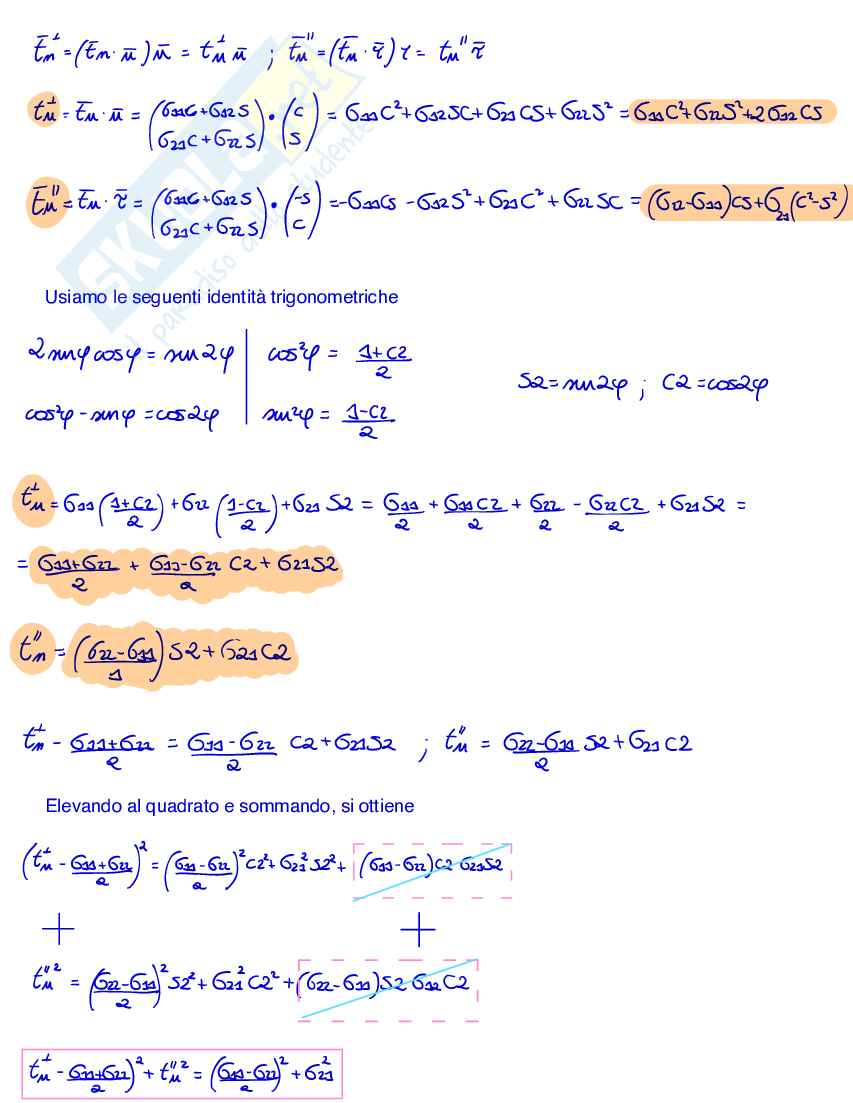 t̄n⊥ = (t̄n · n̄) n̄ = tn⊥ n̄ ; t̄n'' = (t̄n · τ̄) τ = tn'' τ̄
tn⊥ = t̄n · n̄ = (σ11C + σ12S / σ21C + σ22S) • (C / S) = σ11C² + σ12SC + σ21CS + σ22S² = σ11C² + σ22S² + 2σ12CS
t̄n'' = t̄n · τ̄ = (σ11C + σ12S / σ21C + σ22S) • (-S / C) = -σ11CS - σ12S² + σ21C² + σ22SC = (σ22 - σ11)CS + σ21(C² - S²)
Usiamo le seguenti identità trigonometriche
2 sinφ cosφ = sin2φ | cos²φ = (1+C2)/2
S2 = sin2φ ; C2 = cos2φ
cos²φ - sinφ = cos2φ | sin²φ = (1-C2)/2
tn⊥ = σ11 ((1+C2)/2) + σ22 ((1-C2)/2) + σ21 S2 = σ11/2 + σ11C2/2 + σ22/2 - σ22C2/2 + σ21S2 =
= (σ11+σ22)/2 + (σ11-σ22)/2 C2 + σ21S2
tn'' = ((σ22-σ11)/1) S2 + σ21C2
tn⊥ - (σ11+σ22)/2 = (σ11-σ22)/2 C2 + σ21S2 ; tn'' = (σ22-σ11)/2 S2 + σ21C2
Elevando al quadrato e sommando, si ottiene
(tn⊥ - (σ11+σ22)/2)² = ((σ11-σ22)/2)² C2² + σ21² S2² + (σ11-σ22)C2 σ21S2
+ +
tn''² = ((σ22-σ11)/2)² S2² + σ21² C2² + (σ22-σ11)S2 σ12C2
tn⊥ - (σ11+σ22)/2)² + tn''² = ((σ11-σ22)/2)² + σ21²